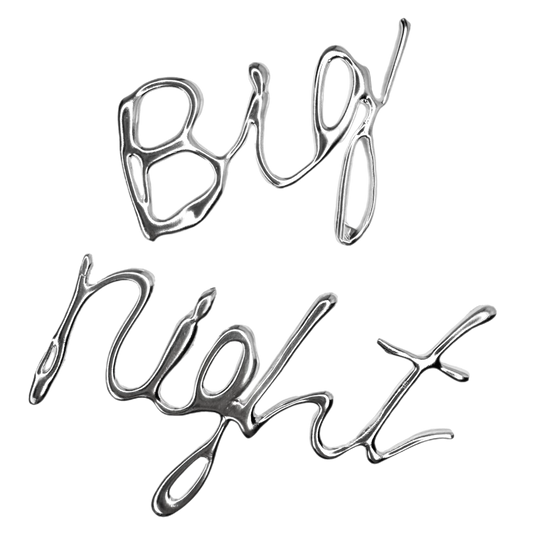 Big
night